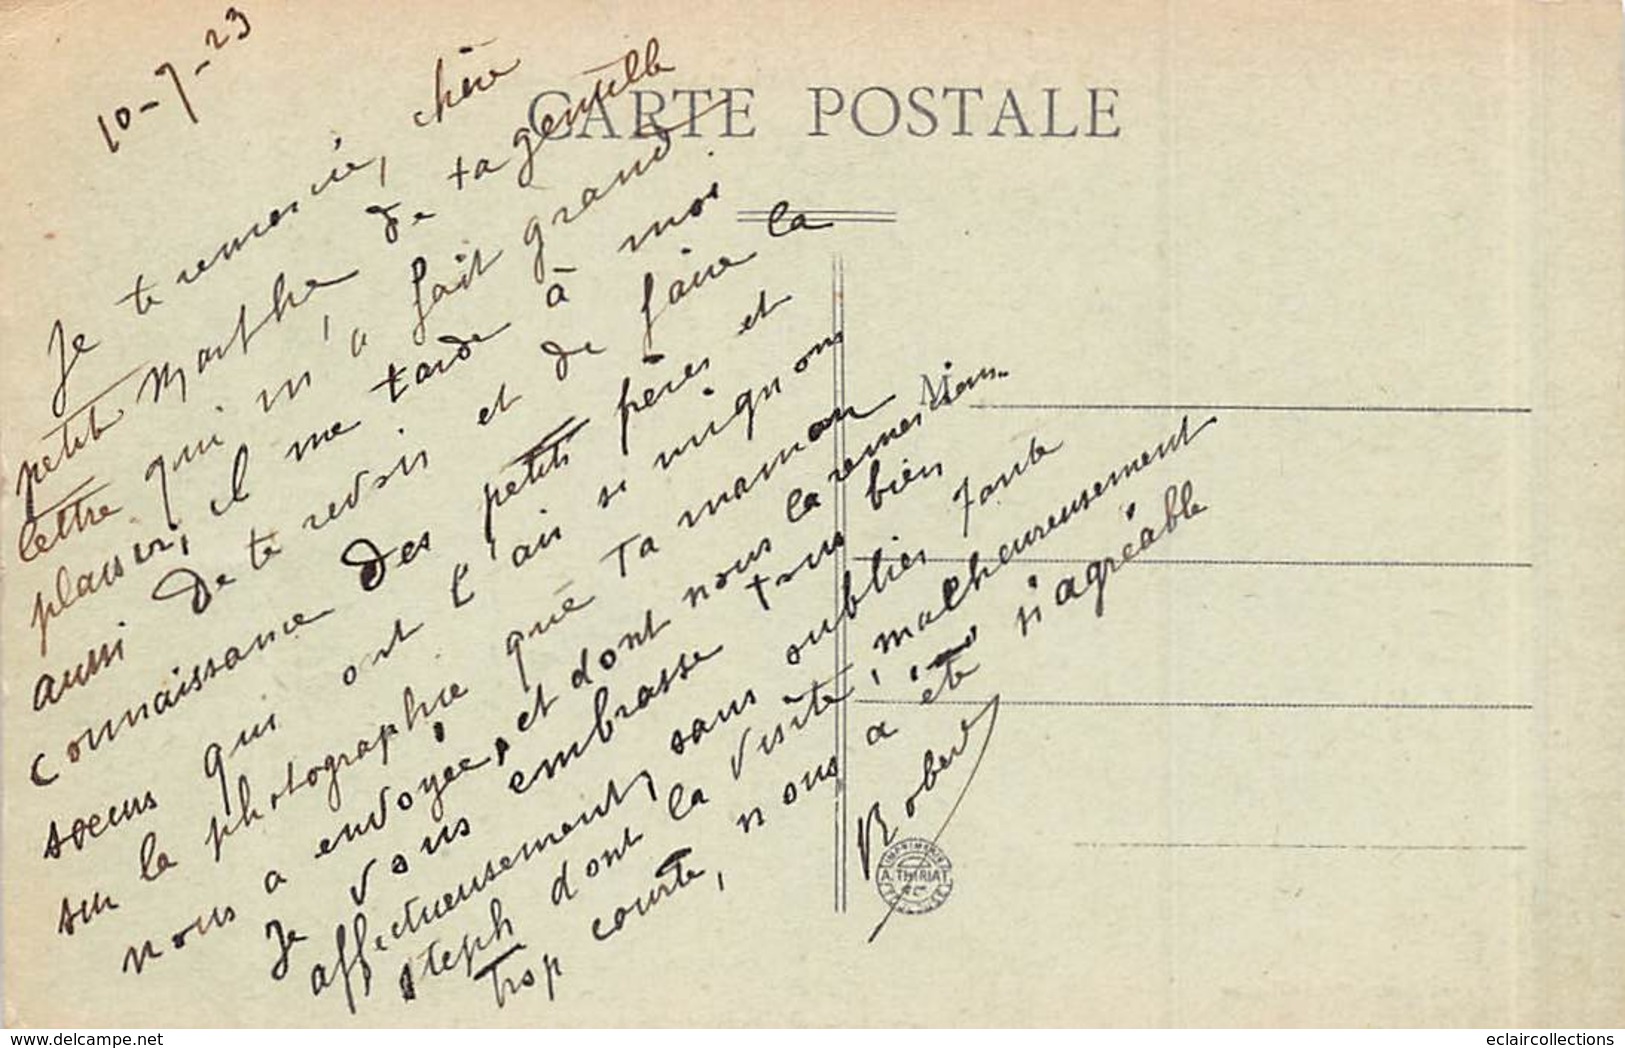 10-7-23
CARTE POSTALE
Je te remercie, chère
petite Marthe de ta gentille
lettre qui m'a fait grand
plaisir, il me tarde à moi
aussi de te revoir et de faire la
connaissance des petits frères et
soeurs qui ont l'air si mignons
sur la photographie que Ta maman
nous a envoyée, et dont nous la remercions bien.
Je vous embrasse tous bien
affectueusement, sans oublier Tante
Steph dont la visite, malheureusement
Trop courte, nous a été si agréable
Robert
IMPRIMERIE
A. THIRIAT
& Cie
delcampe.net
eclaircollections